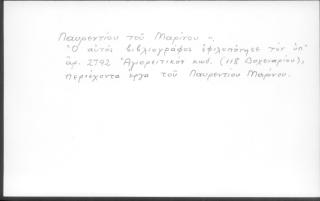 Λαυρεντίου τοῦ Μαρίνου -.
Ὁ αὐτὸς βιβλιογράφος ἐφιλοπόνησε τὸν ὑπ'
ἀρ. 2792 Ἁγιορειτικὸν κωδ. (118 Δοχειαρίου),
περιέχοντα ἔργα τοῦ Λαυρεντίου Μαρίνου.